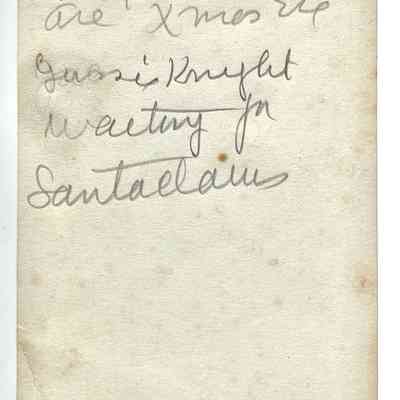 are' Xmas Eve
Gussie Knight
Waiting for
Santaclaus